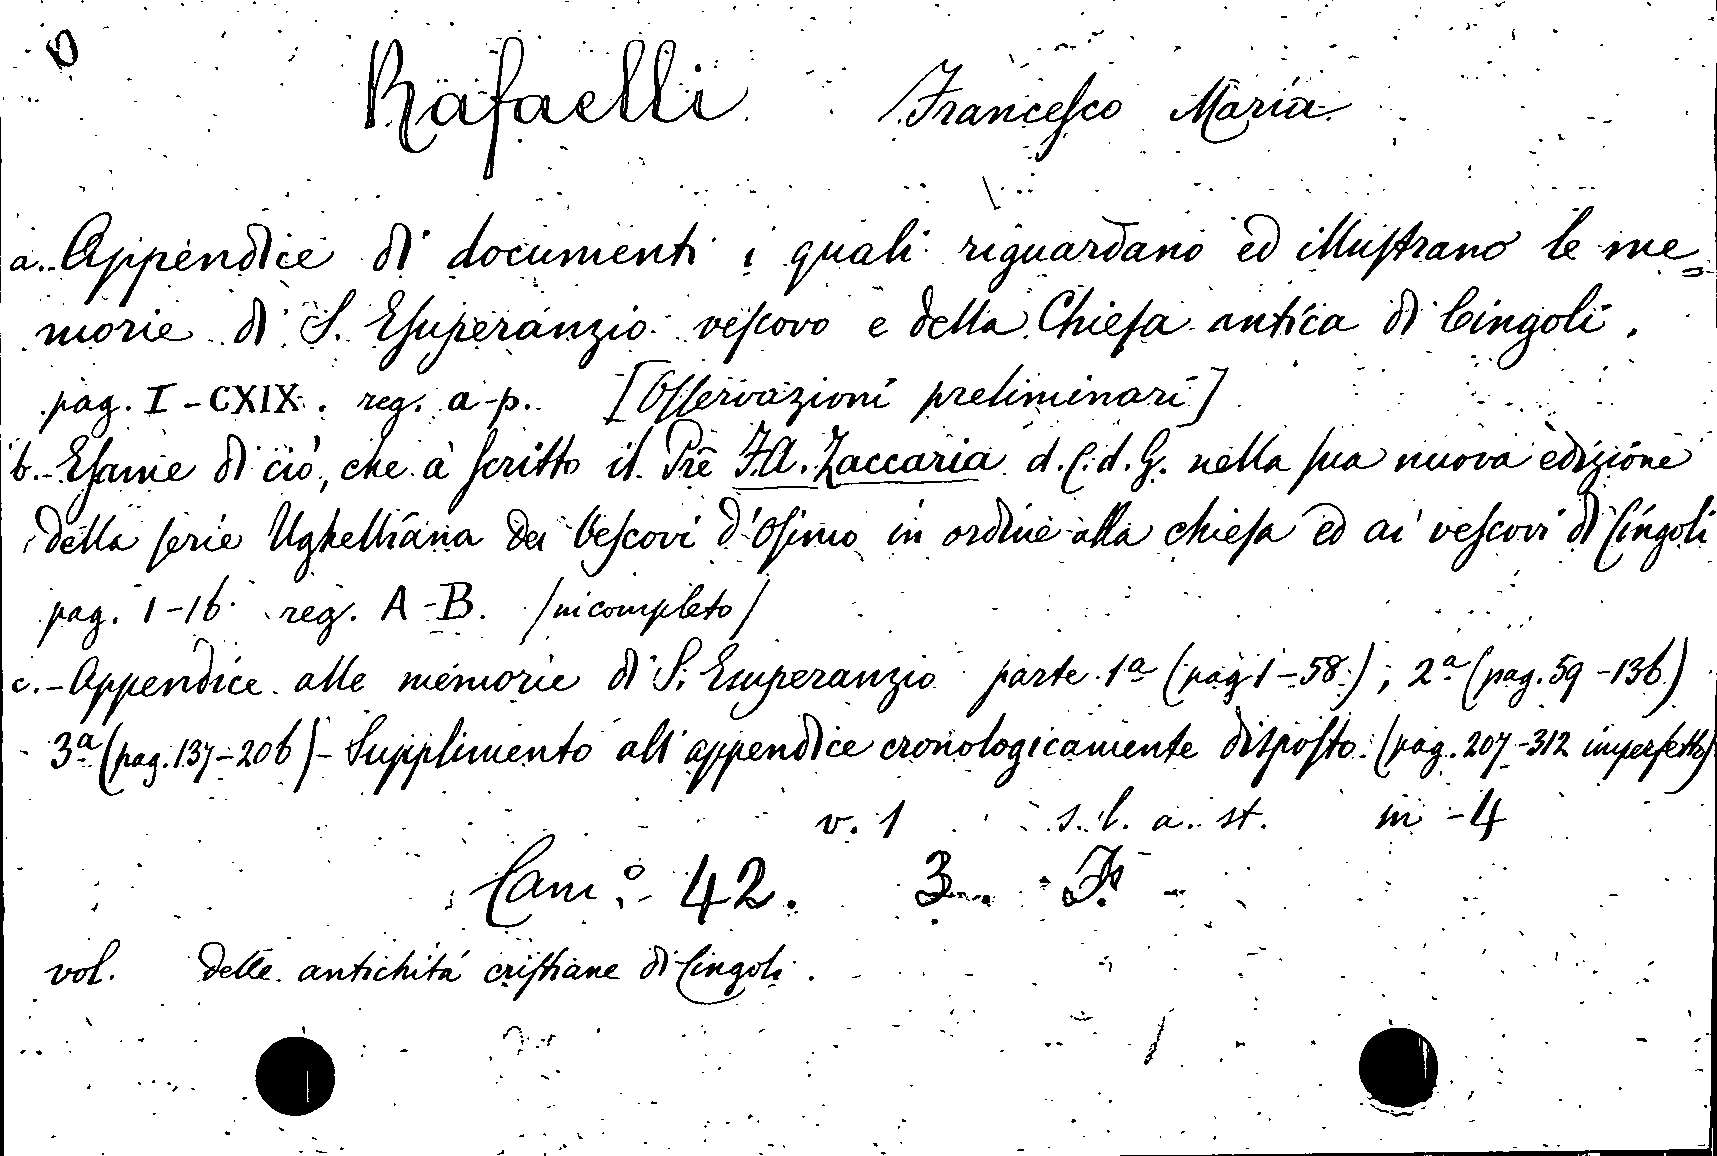 Rafaelli Francesco Maria
a.- Appendice di documenti i quali riguardano ed illustrano le me=
morie di S. Esuperanzio vescovo e della Chiesa antica di Cingoli.
pag. I - CXIX. reg. a-p. [Osservazioni preliminari]
b.- Esame di ciò, che à scritto il Prē F.A. Zaccaria d. C. d. G. nella sua nuova edizione
della serie Ughelliana dei Vescovi d'Osimo in ordine alla chiesa ed ai vescovi di Cingoli
pag. 1-16 reg. A-B. /incompleto/
c.- Appendice alle memorie di S. Esuperanzio parte 1ª (pag 1-58); 2ª (pag. 59-136)
3ª (pag. 137-206) - Supplimento all'appendice cronologicamente disposto (pag. 207-312 imperfetto)
v. 1 s. l. a. st. in-4
Cam.º 42. 3 F.
vol. delle antichitá cristiane di Cingoli.